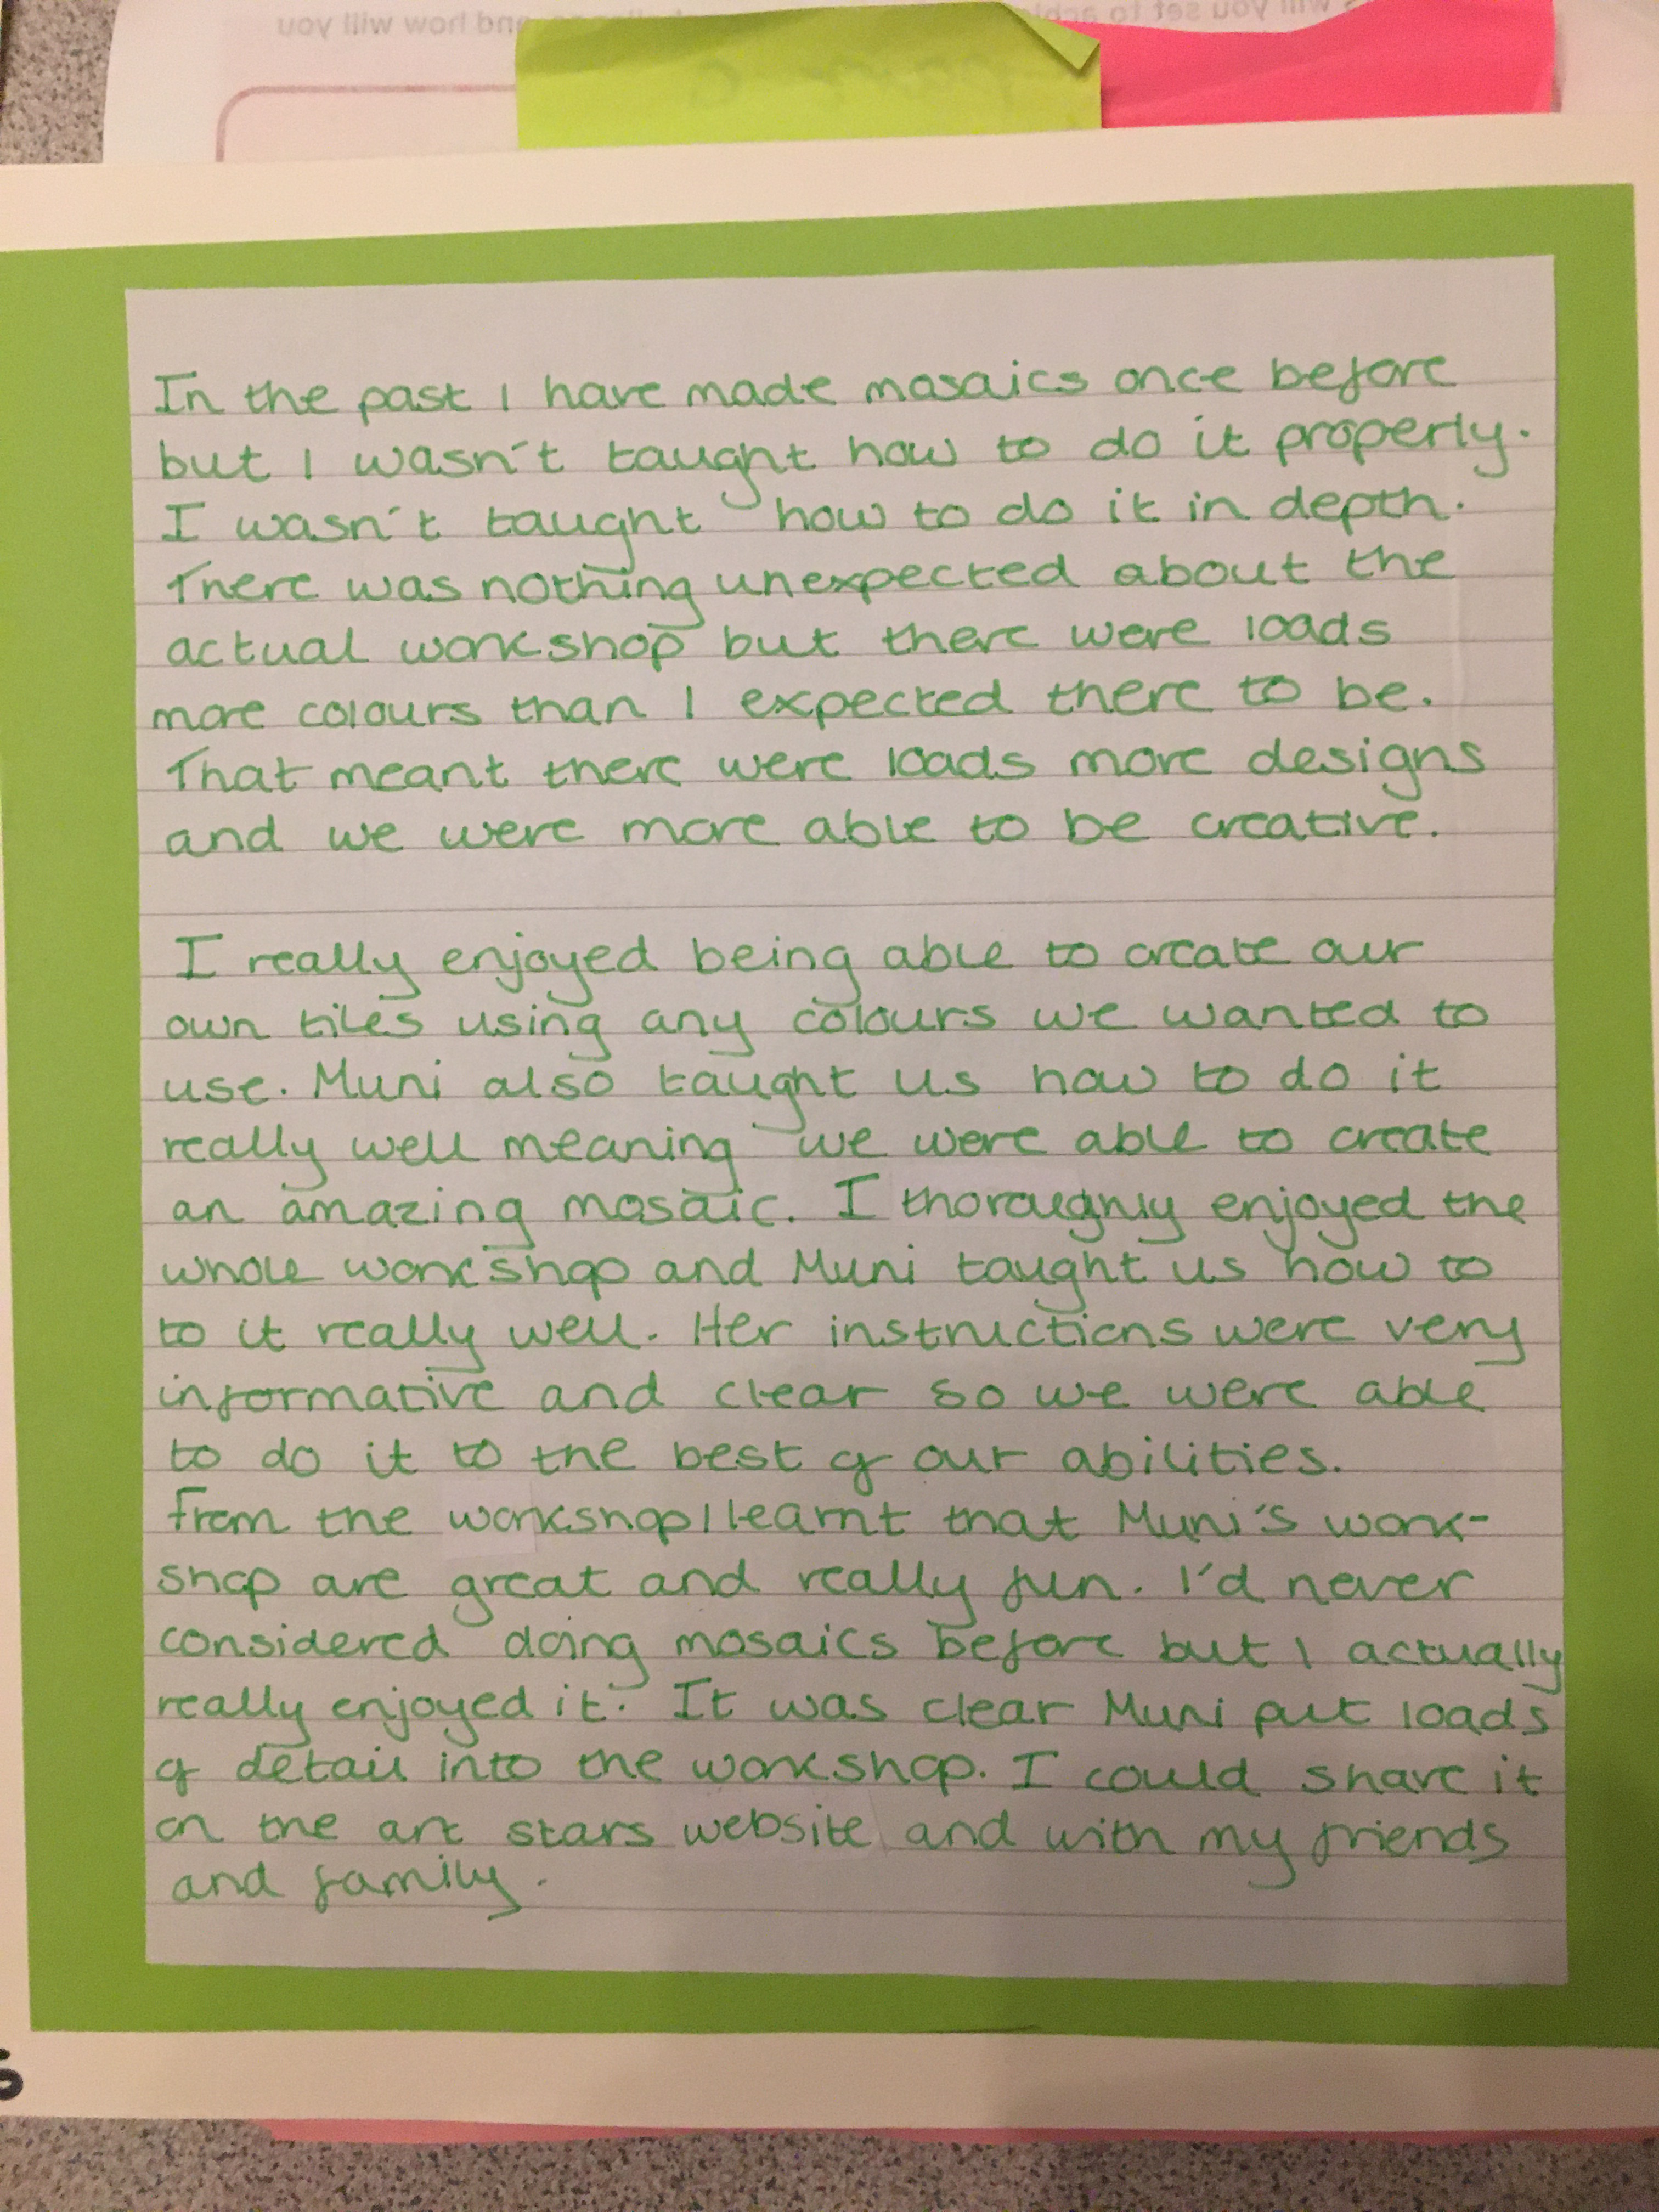 In the past I have made mosaics once before
but I wasn't taught how to do it properly.
I wasn't taught how to do it in depth.
There was nothing unexpected about the
actual workshop but there were loads
more colours than I expected there to be.
That meant there were loads more designs
and we were more able to be creative.
I really enjoyed being able to create our
own tiles using any colours we wanted to
use. Muni also taught us how to do it
really well meaning we were able to create
an amazing mosaic. I thoroughly enjoyed the
whole workshop and Muni taught us how to
to it really well. Her instructions were very
informative and clear so we were able
to do it to the best of our abilities.
From the workshop I learnt that Muni's work-
shop are great and really fun. I'd never
considered doing mosaics before but I actually
really enjoyed it. It was clear Muni put loads
of detail into the workshop. I could share it
on the art stars website and with my friends
and family.